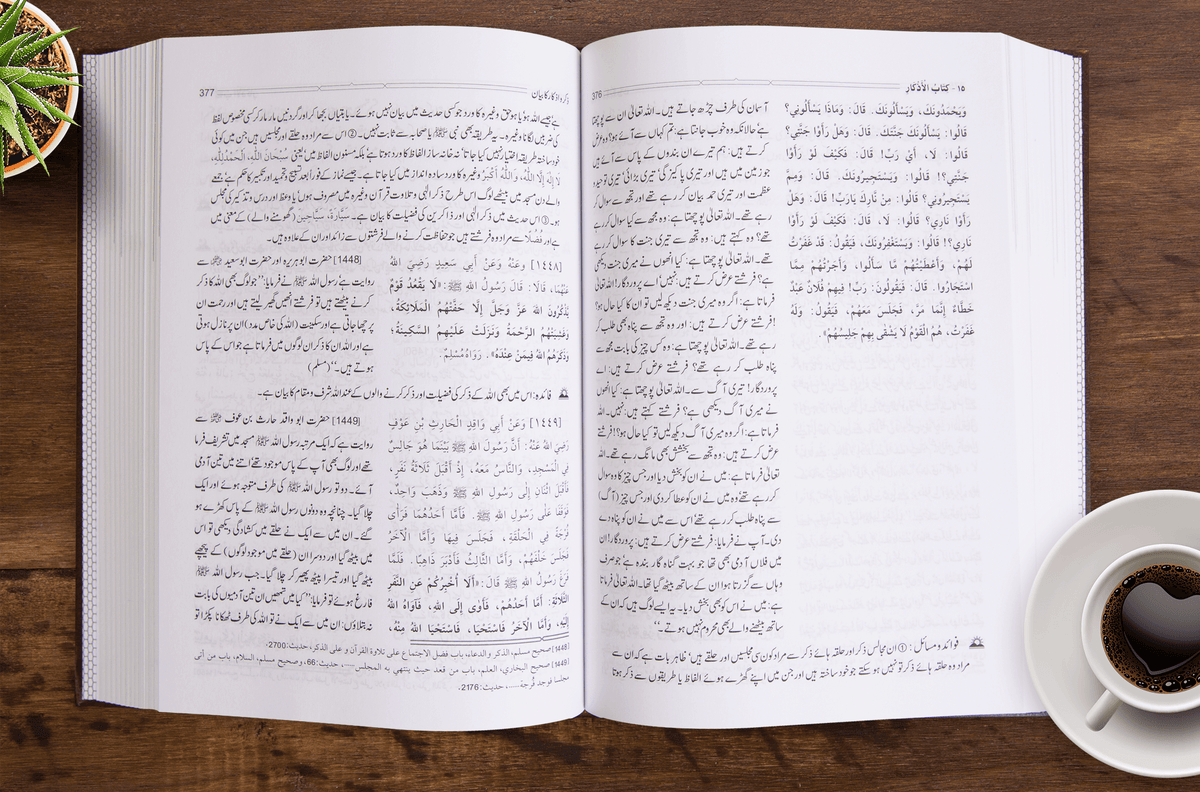 ١٥ - كتَابُ الْأَذْكَارِ
376
وَيَحْمَدُونَكَ، وَيَسْأَلُونَكَ. قَالَ: وَمَاذَا يَسْأَلُونِي؟
قَالُوا: يَسْأَلُونَكَ جَنَّتَكَ. قَالَ: وَهَلْ رَأَوْا جَنَّتِي؟
قَالُوا: لَا، أَيْ رَبِّ! قَالَ: فَكَيْفَ لَوْ رَأَوْا
جَنَّتِي؟! قَالُوا: وَيَسْتَجِيرُونَكَ. قَالَ: وَمِمَّ
يَسْتَجِيرُونِي؟ قَالُوا: مِنْ نَّارِكَ يَارَبِّ! قَالَ: وَهَلْ
رَأَوْا نَارِي؟ قَالُوا: لَا، قَالَ: فَكَيْفَ لَوْ رَأَوْا
نَارِي؟! قَالُوا: وَيَسْتَغْفِرُونَكَ، فَيَقُولُ: قَدْ غَفَرْتُ
لَهُمْ، وَأَعْطَيْتُهُمْ مَّا سَأَلُوا، وَأَجَرْتُهُمْ مِمَّا
اسْتَجَارُوا. قَالَ: فَيَقُولُونَ: رَبِّ! فِيهِمْ فُلَانٌ عَبْدٌ
خَطَّاءٌ إِنَّمَا مَرَّ، فَجَلَسَ مَعَهُمْ، فَيَقُولُ: وَلَهُ
غَفَرْتُ، هُمُ الْقَوْمُ لَا يَشْقَى بِهِمْ جَلِيسُهُمْ».
آسمان کی طرف چڑھ جاتے ہیں۔۔۔ اللہ تعالیٰ ان سے پوچھتا
ہے حالانکہ وہ خوب جانتا ہے: تم کہاں سے آئے ہو؟ وہ عرض
کرتے ہیں: ہم تیرے ان بندوں کے پاس سے آئے ہیں
جو زمین میں ہیں اور تیری پاکیزگی، تیری بڑائی، تیری توحید و
عظمت اور تیری حمد بیان کر رہے تھے اور تجھ سے سوال کر
رہے تھے۔ اللہ تعالیٰ پوچھتا ہے: وہ مجھ سے کیا سوال کر رہے
تھے؟ وہ کہتے ہیں: وہ تجھ سے تیری جنت کا سوال کر رہے
تھے۔ اللہ تعالیٰ پوچھتا ہے: کیا انھوں نے میری جنت دیکھی
ہے؟ فرشتے عرض کرتے ہیں: نہیں اے پروردگار! اللہ تعالیٰ
فرماتا ہے: اگر وہ میری جنت دیکھ لیں تو ان کا کیا حال ہو؟
فرشتے عرض کرتے ہیں: اور وہ تجھ سے پناہ بھی طلب کر
رہے تھے۔ اللہ تعالیٰ پوچھتا ہے: وہ کس چیز کی بابت مجھ سے
پناہ طلب کر رہے تھے؟ فرشتے عرض کرتے ہیں: اے
پروردگار! تیری آگ سے۔ اللہ تعالیٰ پوچھتا ہے: کیا انھوں
نے میری آگ دیکھی ہے؟ فرشتے کہتے ہیں: نہیں۔ اللہ
فرماتا ہے: اگر وہ میری آگ دیکھ لیں تو کیا حال ہو؟! فرشتے
عرض کرتے ہیں: وہ تجھ سے بخشش بھی مانگ رہے تھے۔ اللہ
تعالیٰ فرماتا ہے: میں نے ان کو بخش دیا اور جس چیز کا وہ سوال
کر رہے تھے وہ میں نے ان کو عطا کر دی اور جس چیز (آگ)
سے پناہ طلب کر رہے تھے اس سے میں نے ان کو پناہ دے
دی۔ آپ نے فرمایا: فرشتے عرض کرتے ہیں: پروردگار! ان
میں فلاں آدمی بھی تھا جو بہت گناہ گار بندہ ہے جو صرف
وہاں سے گزر رہا تھا ان کے ساتھ بیٹھ گیا تھا۔ اللہ تعالیٰ فرماتا
ہے: میں نے اس کو بھی بخش دیا۔ یہ ایسے لوگ ہیں کہ ان کے
ساتھ بیٹھنے والے بھی محروم نہیں ہوتے۔‘‘
فوائد و مسائل: ① ان مجالس ذکر اور حلقہ ہائے ذکر سے مراد کون سی مجلسیں اور حلقے ہیں؟ ظاہر بات ہے کہ ان سے
مراد وہ حلقہ ہائے ذکر تو نہیں ہو سکتے جو خود ساختہ ہیں اور جن میں اپنے گھڑے ہوئے الفاظ یا طریقوں سے ذکر ہوتا
ذکر و اذکار کا بیان
377
ہے جیسے اللہ ہُو یا ہوحق وغیرہ کا ورد جو کسی حدیث میں بیان نہیں ہوئے۔ یا بتیاں بجھا کر اور گردنیں مار مار کر کسی مخصوص لفظ
کی ضربیں لگانا وغیرہ۔ یہ طریقہ بھی نبی ﷺ یا صحابہ سے ثابت نہیں۔ ② اس سے مراد وہ حلقے اور مجلسیں ہیں جن میں کوئی
خود ساختہ طریقہ اختیار نہیں کیا جاتا، نہ خانہ ساز الفاظ کا ورد ہوتا ہے بلکہ مسنون الفاظ میں، یعنی سُبْحَانَ اللهِ، اَلْحَمْدُلِلّٰهِ،
لَا إِلٰهَ إِلَّا اللهُ، وَاللهُ أَكْبَرُ وغیرہ کا ورد سادہ انداز میں کیا جاتا ہے۔ جیسے نماز کے فوراً بعد تسبیح و تحمید اور تکبیر کا حکم ہے، جمعے
والے دن مسجد میں بیٹھے لوگ اس طرح ذکر الٰہی و تلاوت قرآن وغیرہ میں مصروف ہوں یا وعظ اور درس و تذکیر کی مجلس
ہو۔ ③ اس حدیث میں ذکر الٰہی اور ذاکرین کی فضیلت کا بیان ہے۔ سَيَّارَة، سَيَّاحِين (گھومنے والے) کے معنی میں
ہے اور فُضُلًا سے مراد وہ فرشتے ہیں جو حفاظت کرنے والے فرشتوں سے زائد اور ان کے علاوہ ہیں۔
[١٤٤٨] وَعَنْهُ وَعَنْ أَبِي سَعِيدٍ رَضِيَ اللهُ
عَنْهُمَا، قَالَا: قَالَ رَسُولُ اللهِ ﷺ: «لَا يَقْعُدُ قَوْمٌ
يَذْكُرُونَ اللهَ عَزَّ وَجَلَّ إِلَّا حَفَّتْهُمُ الْمَلَائِكَةُ،
وَغَشِيَتْهُمُ الرَّحْمَةُ وَنَزَلَتْ عَلَيْهِمُ السَّكِينَةُ؛
وَذَكَرَهُمُ اللهُ فِيمَنْ عِنْدَهُ». رَوَاهُ مُسْلِمٌ.
[1448] حضرت ابوہریرہ اور حضرت ابوسعید ؓ سے
روایت ہے رسول اللہ ﷺ نے فرمایا: ’’جو لوگ بھی اللہ کا ذکر
کرنے بیٹھتے ہیں تو فرشتے انھیں گھیر لیتے ہیں اور رحمت ان
پر چھا جاتی ہے اور سکینت (اللہ کی خاص مدد) ان پر نازل ہوتی
ہے اور اللہ ان کا ذکر ان لوگوں میں فرماتا ہے جو اس کے پاس
ہوتے ہیں۔‘‘ (مسلم)
فائدہ: اس میں بھی اللہ کے ذکر کی فضیلت اور ذکر کرنے والوں کے عند اللہ شرف و مقام کا بیان ہے۔
[١٤٤٩] وَعَنْ أَبِي وَاقِدٍ الْحَارِثِ بْنِ عَوْفٍ
رَضِيَ اللهُ عَنْهُ: أَنَّ رَسُولَ اللهِ ﷺ بَيْنَمَا هُوَ جَالِسٌ
فِي الْمَسْجِدِ، وَالنَّاسُ مَعَهُ، إِذْ أَقْبَلَ ثَلَاثَةُ نَفَرٍ،
فَأَقْبَلَ اثْنَانِ إِلَى رَسُولِ اللهِ ﷺ وَذَهَبَ وَاحِدٌ،
فَوَقَفَا عَلَى رَسُولِ اللهِ ﷺ. فَأَمَّا أَحَدُهُمَا فَرَأَى
فُرْجَةً فِي الْحَلْقَةِ، فَجَلَسَ فِيهَا وَأَمَّا الْآخَرُ
فَجَلَسَ خَلْفَهُمْ، وَأَمَّا الثَّالِثُ فَأَدْبَرَ ذَاهِبًا. فَلَمَّا
فَرَغَ رَسُولُ اللهِ ﷺ قَالَ: «أَلَا أُخْبِرُكُمْ عَنِ النَّفَرِ
الثَّلَاثَةِ: أَمَّا أَحَدُهُمْ، فَأَوٰى إِلَى اللهِ، فَآوَاهُ اللهُ
إِلَيْهِ، وَأَمَّا الْآخَرُ فَاسْتَحْيَا، فَاسْتَحْيَا اللهُ مِنْهُ،
[1449] حضرت ابو واقد حارث بن عوف ؓ سے
روایت ہے کہ ایک مرتبہ رسول اللہ ﷺ مسجد میں تشریف فرما
تھے اور لوگ بھی آپ کے پاس موجود تھے، اتنے میں تین آدمی
آئے۔ دو تو رسول اللہ ﷺ کی طرف متوجہ ہوئے اور ایک
چلا گیا۔ چنانچہ وہ دونوں رسول اللہ ﷺ کے پاس کھڑے ہو
گئے۔ ان میں سے ایک نے حلقے میں کشادگی دیکھی تو اس
میں بیٹھ گیا اور دوسرا ان (حلقے میں موجود لوگوں) کے پیچھے
بیٹھ گیا اور تیسرا پیٹھ پھیر کر چلا گیا۔ جب رسول اللہ ﷺ
فارغ ہوئے تو فرمایا: ’’کیا میں تمھیں ان تین آدمیوں کی بابت
نہ بتلاؤں: ان میں سے ایک نے تو اللہ کی طرف ٹھکانا پکڑا تو
[1448] صحيح مسلم، الذكر والدعاء، باب فضل الاجتماع على تلاوة القرآن و على الذكر، حديث: 2700.
[1449] صحيح البخاري، العلم، باب من قعد حيث ينتهي به المجلس....، حديث: 66، وصحيح مسلم، السلام، باب من أتى
مجلسا فوجد فرجة....، حديث: 2176.